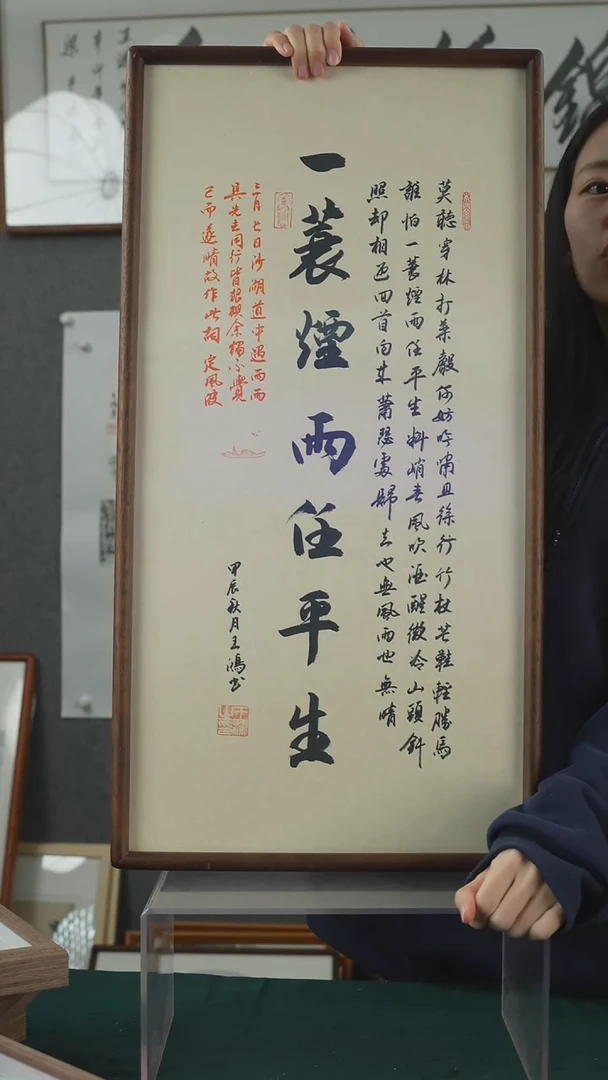 莫聽穿林打葉聲何妨吟嘯且徐行竹杖芒鞋輕勝馬
誰怕一蓑煙雨任平生料峭春風吹酒醒微冷山頭斜
照却相迎回首向来蕭瑟處歸去也無風雨也無晴
一蓑煙雨任平生
三月七日沙湖道中遇雨雨
具先去同行皆狼狽余獨不覺
已而遂晴故作此詞 定風波
甲辰秋月王鴻书